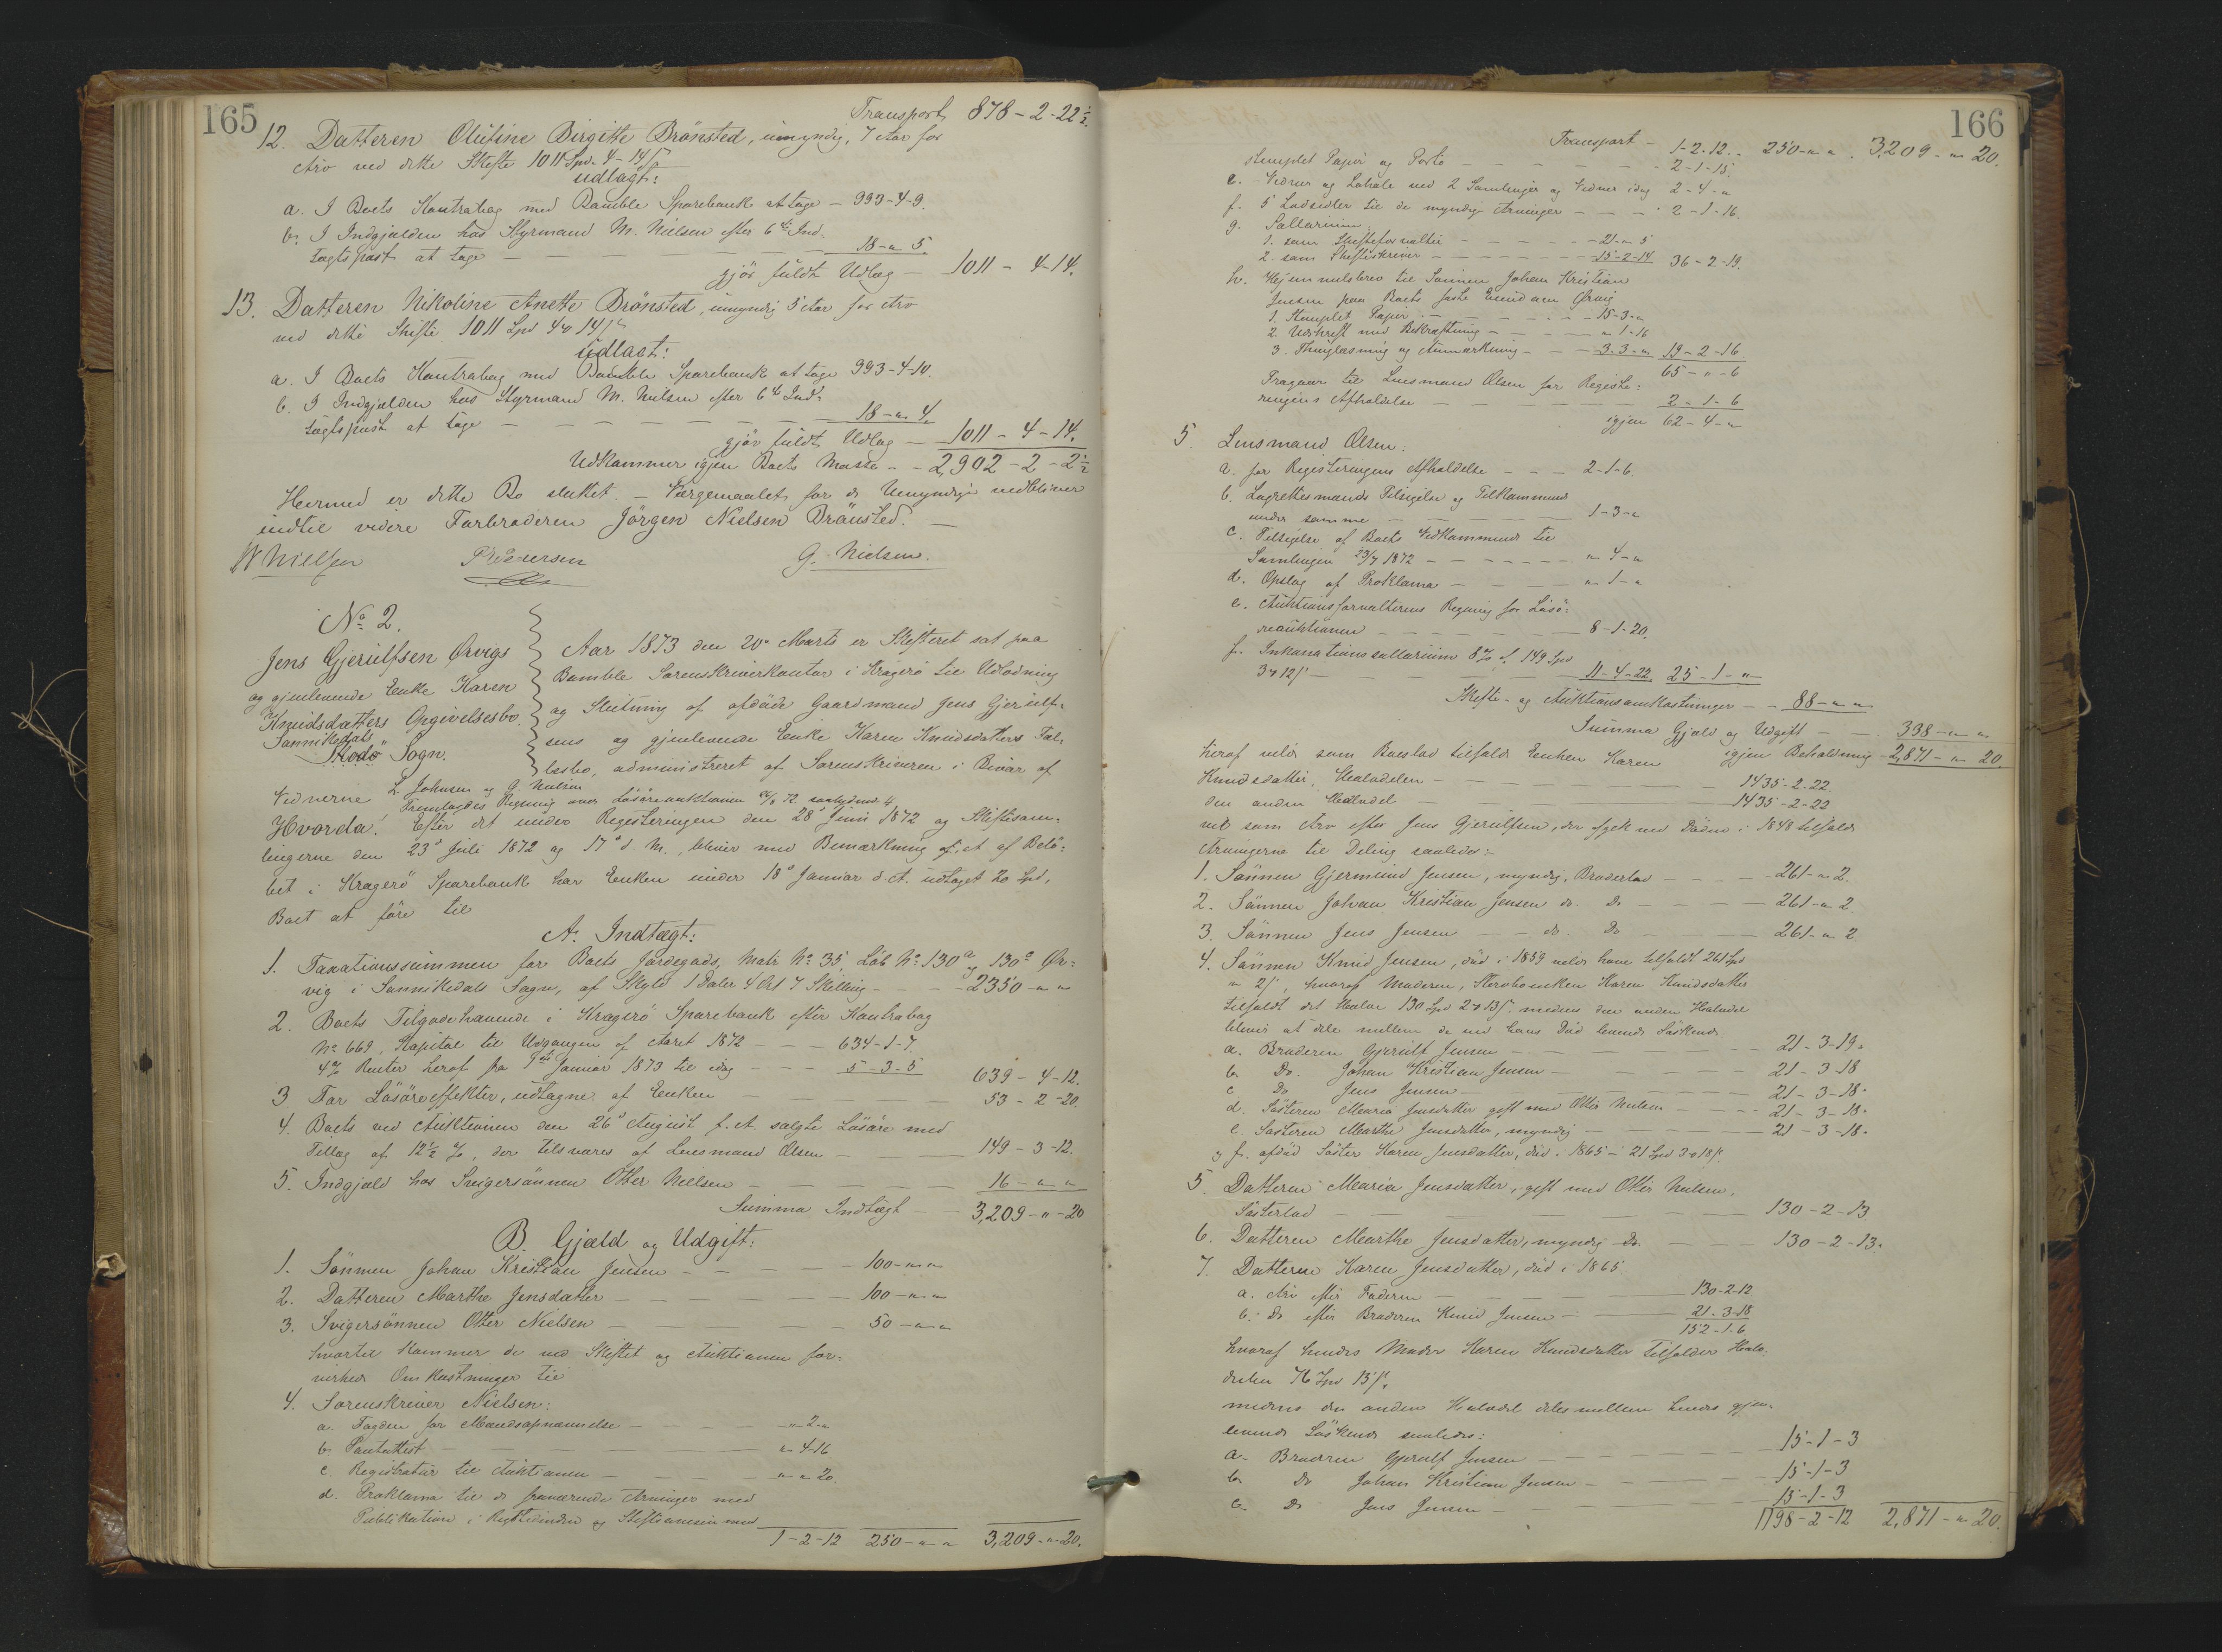 165
Transport 878 - 2 - 22½.
12. Datteren Olutine Birgitte Brönsted, umyndig, 7 Aar for
Arv ved dette Skifte 1011 Spd. 4 - 14 ß
udlagt:
a. I Boets Kontrabog med Bamble Sparebank at tage - 993-4-9.
b. I Indgjælden hos Styrmand M. Nielsen efter 6te Ind-
tægtspost at tage - - - - 18 - " 5.
gjör fuldt Udlæg - 1011 - 4-14.
13. Datteren Nikoline Anette Brönsted, umyndig 5 Aar for Arv
ved dette Skifte 1011 Spd 4 " 14 ß
udlagt:
a. I Boets Kontrabog med Bamble Sparebank at tage 993-4-10.
b. I Indgjælden hos Styrmand M. Nielsen efter 6te Ind-
tægtspost at tage - - - - 18 - " 4.
gjör fuldt Udlæg - 1011 - 4 - 14.
Udkommer igjen Boets Masse - - 2,902 - 2 - 2½
Hermed er dette Bo sluttet. - Værgemaalet for de Umyndige vedbliver
indtil videre Farbroderen Jörgen Nielsen Brönsted. -
W Nielsen P Pedersen G. Nielsen.
No 2.
Jens Gjerulfsen Ørvigs
og gjenlevende Enke Karen
Knudsdatters Opgivelsesbo.
Sannikedals
Skodö Sogn.
Aar 1873 den 20de Marts er Skifteret sat paa
Bamble Sorenskriverkontor i Kragerö til Udlodning
og Slutning af afdöde Gaardmand Jens Gjerulf-
sens og gjenlevende Enke Karen Knudsdatters Fæl-
lesbo, administreret af Sorenskriveren i Bivær af
Vidnerne L. Johnsen og G. Nielsen
Fremlagdes Regning over Lösöreauktionen 26/8 72 saalydende 4
Hvorda: Efter det under Registeringen den 28de Juni 1872 og Skiftesam-
lingerne den 23de Juli 1872 og 17de d. M., bliver med Bemærkning af, at af Belö-
bet i Kragerö Sparebank har Enken under 18de Januar d. A. udtaget 20 Spd,
Boet at före til
A. Indtægt:
1. Taxationssummen for Boets Jordegods, Matr No 35, Löb No 130a og 130c Ør-
vig i Sannikedals Sogn, af Skyld 1 Daler 4 Ort 7 Skilling - - - 2350 - " "
2. Boets Tilgodehavende i Kragerö Sparebank efter Kontrabog
No 669, Kapital til Udgangen af Aaret 1872 - - - 634-1-7.
4% Renter heraf fra 1ste Januar 1873 til idag - - - 5 - 3 - 5 639 - 4-12.
3. For Lösöreeffekter, udtagne af Enken - - - - 53 - 2 -20.
4. Boets ved Auktionen den 26de August f. A. solgte Lösöre med
Tillæg af 12½ %, der tilsvares af Lensmand Olsen - - 149 - 3-12.
5. Indgjæld hos Svigersönnen Otter Nielsen - - - - 16 - " "
Summa Indtægt - - 3,209 - " - 20
B. Gjæld og Udgift:
1. Sönnen Johan Kristian Jensen - - - - 100 - " "
2. Datteren Marthe Jensdatter - - - - 100 - " "
3. Svigersönnen Otter Nielsen - - - - 50 - " "
hvortil kommer de ved Skiftet og Auktionen for-
virkede Omkostninger til
4. Sorenskriver Nielsen:
a. Fogden for Mandsopnævnelse - - - " 2 - "
b. Pantattest - - - - " 4-16
c. Registratur til Auktionen - - - - " " 20.
d. Proklama til de fraværende Arvinger med
Publikation i Rigstidenden og
1-2-12 250 - " " 3,209 - " - 20.
166
Transport - 1-2-12. - 250 - " " . 3,209 - " 20.
stemplet Papir og Porto - - - - 2-1-15.
e. Vidner og Lokale ved 2 Samlinger og Vidner idag 2 - 4 - "
f. 5 Lodsedler til de myndige Arvinger - - - 2 - 1 - 16.
g. Sallarium:
1. som Skifteforvalter - - - - 21 - " 5
2. som Skifteskriver - - - - 15-2-14 36 - 2 -19.
h. Hjemmelsbrev til Sönnen Johan Kristian
Jensen paa Boets faste Eiendom Ørvig
1. Stemplet Papir - - - - 15 - 3 - "
2. Udskrift med Bekræftning - - - " 1-16
3. Thinglæsning og Anmærkning - - - 3-3-" 19 - 2 -16
65 - " - 6
Fragaar til Lensmand Olsen for Registe-
ringens Afholdelse - - - - 2 - 1 - 6
igjen 62 - 4 - "
5. Lensmand Olsen:
a. for Registeringens Afholdelse - - - 2-1-6.
b. Lagrettesmænds Tilsigelse og Tilkommende
under samme - - - - 1-3-"
c. Tilsigelse af Boets Vedkommende til
Samlingen 23/7 1872 - - - - " 4 - "
d. Opslag af Proklama - - - - " 1 - "
e. Auktionsforvalterens Regning for Lösö-
reauktionen - - - - 8-1-20.
f. Inkassationssallarium 8 % af 149 Spd
3 " 12 ß - - - - 11-4-22 25 - 1 - "
Skifte- og Auktionsomkostninger - - 88 - " "
Summa Gjæld og Udgift - - 338 - " "
igjen Beholdning - 2,871 - " 20
heraf udlös som Boeslod tilfalde Enken Karen
Knudsdatter Halvdelen - - - - 1435-2-22.
den anden Halvdel - - - - 1435-2-22
vil som Arv efter Jens Gjerulfsen, der afgik ved Döden i 1848 tilfalde
Arvingerne til Deling saaledes:
1. Sönnen Gjermund Jensen, myndig, Broderlod - - - - 261 - " 2.
2. Sönnen Johan Kristian Jensen do. Do - - - 261 - " 2
3. Sönnen Jens Jensen - - do. Do - - - 261 - " 2
4. Sönnen Knud Jensen, död i 1859 vilde have tilfaldt 261 Spd
" 2 ß, hvoraf Moderen, Stervboenken Karen Knudsdatter
tilfaldt det Halve 130 Spd 2 " 13 ß. medens den anden Halvdel
bliver at dele mellem de ved hans Död levende Söskende
a. Broderen Gjerulf Jensen - - - - 21 - 3-19.
b. Do. Johan Kristian Jensen - - - - 21 - 3-18
c. Do Jens Jensen - - - - 21 - 3-18.
d. Søsteren Maria Jensdatter gift med Otter Nielsen - - - 21 - 3-18.
e. Søsteren Marthe Jensdatter, myndig - - - 21 - 3-18.
og f. afdöd Söster Karen Jensdatter, död i 1865 - 21 Spd 3 " 18 ß.
5. Datteren Maria Jensdatter, gift med Otter Nielsen,
Søsterlod - - - - 130 - 2-13
6. Datteren Marthe Jensdatter, myndig do. - - - 130 - 2-13.
7. Datteren Karen Jensdatter, död i 1865
a. Arv efter Faderen - - - - 130-2-12
b. Do efter Broderen Knud Jensen - - 21-3-18
152-1-6
hvoraf hendes Moder Karen Knudsdatter tilfalder Halv-
delen 76 Spd 15 ß.
medens den anden Halvdel deles mellem hendes gjen-
levende Söskende saaledes:
a. Broderen Gjerulf Jensen - - - - 15-1-3
b. Do Johan Kristian Jensen - - - - 15-1-3
c. Do Jens Jensen - - - - 15-1-3
1198-2-12 2,871 - " 20.